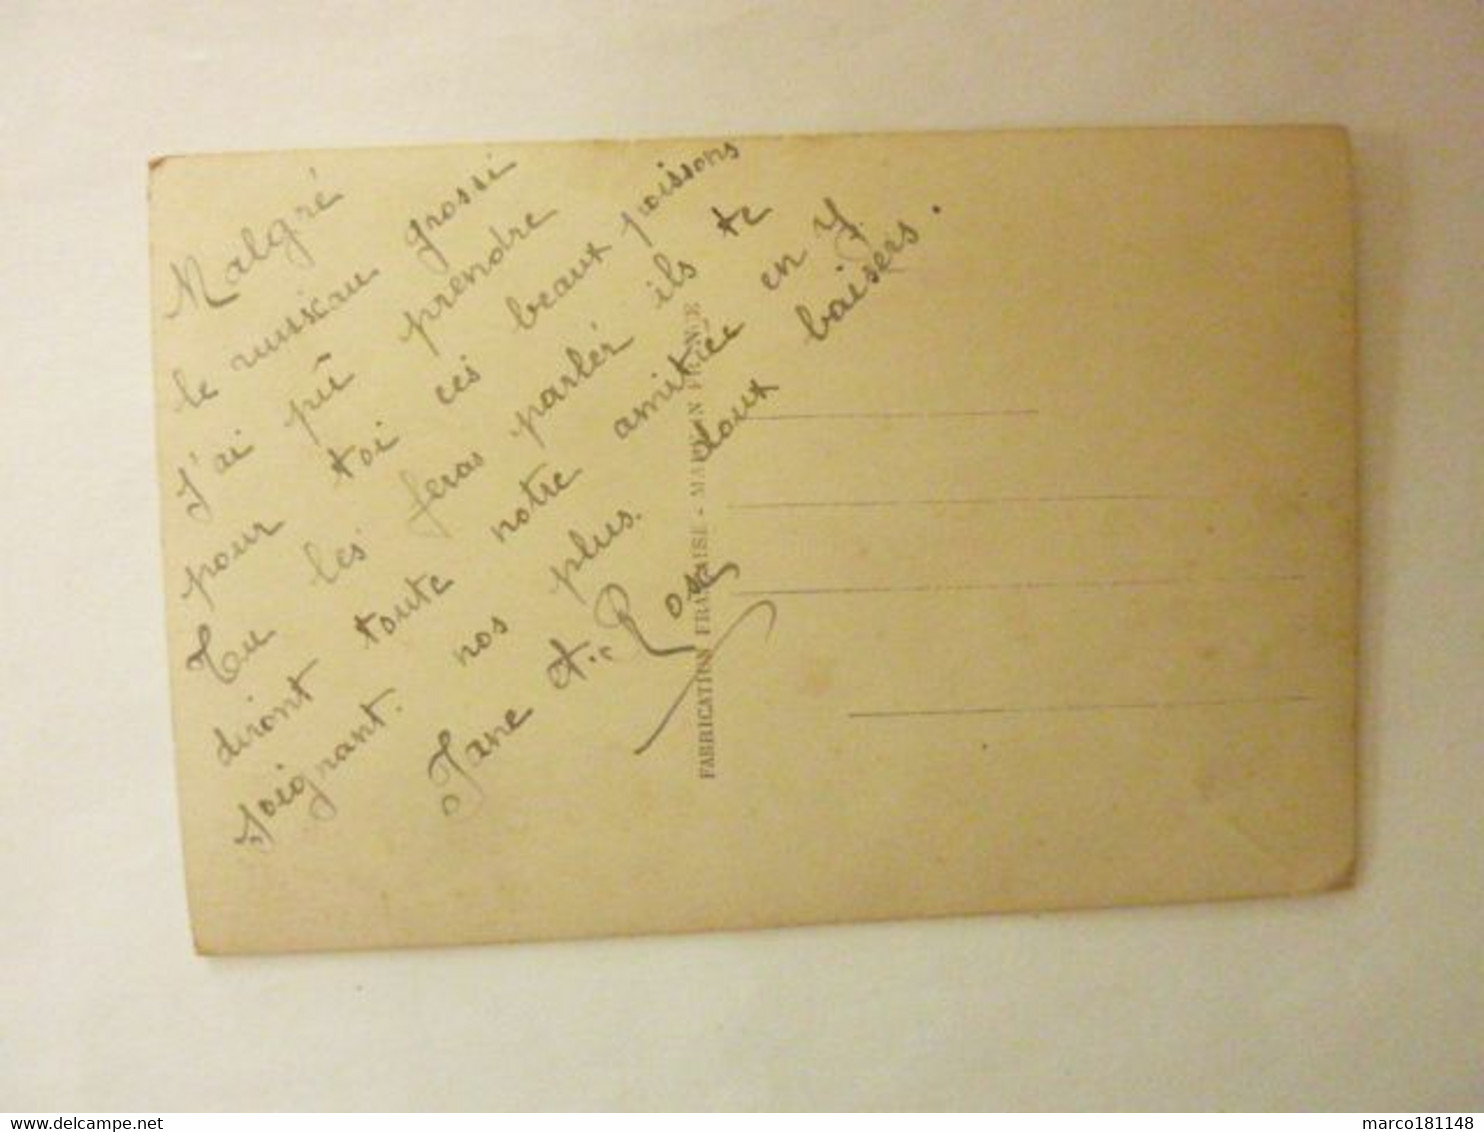 Malgré
le ruisseau grossi
J'ai pû prendre
pour toi ces beaux poissons
Tu les feras parlér ils te
diront toute notre amitiée en y
joignant. nos plus. doux baisers.
Jane et Rose
FABRICATION FRANÇAISE - MADE IN FRANCE
marco181148